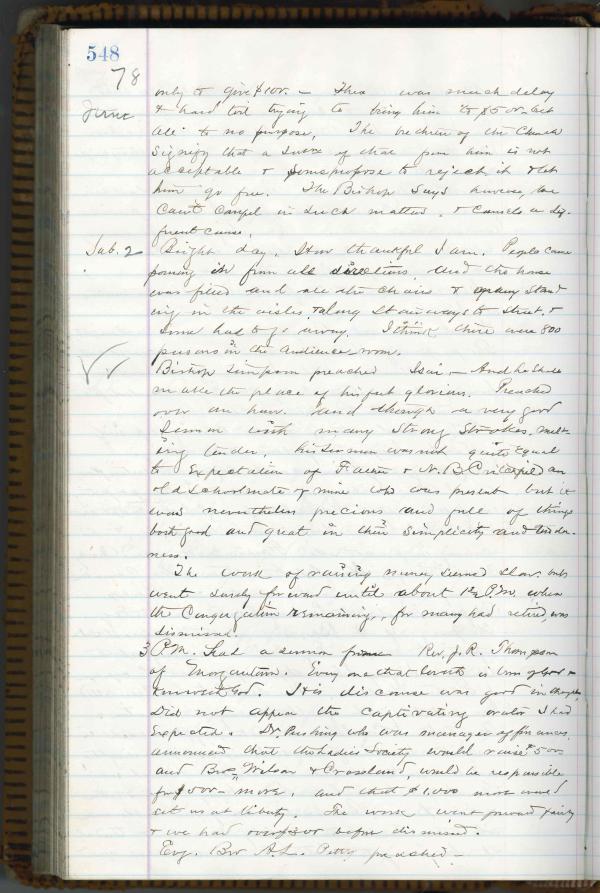 548
78
June
only to give $100. – There was much delay
& hard toil trying to bring him to $500 – but
all to no purpose. The brethren of the Church
signify that a sum of that from him is not
acceptable & some propose to reject it & let
him go free. The Bishop says however, we
can't compel in such matters, & counsels a dif-
ferent course.
Sab. 2 Bright day. How thankful I am. People came
pouring in from all directions and the house
was filled and all the chairs & many stand
ing in the aisles, & along stairways to street, &
some had to go away. I think there were 800
persons in the audience room.
Bishop Simpson preached Isai – And he shall
make the place of his feet glorious. Preached
over an hour. and though a very good
sermon with many strong strokes, melt-
ing tender, his sermon was not quite equal
to expectation of & N. B. an
old schoolmate of mine who was present but it
was nevertheless precious and full of things
both good and great in their simplicity and tender-
ness.
The work of raising money seemed slow. but
went surely forward until about 1½ P.M. when
the Congregation remaining, for many had retired, was
dismissed.
3 P.M. had a sermon from Rev. J. R. Thompson
of Morgantown. Every one that loveth is born of God &
knoweth God. His discourse was good in thought
Did not appear the captivating orator I had
expected. Dr. Pershing who was manager of finances
announced that the Ladies Society would raise $500
and Bros. Wilson & Crossland, would be responsible
for $500 – more, and that $1,000 more would
set us at liberty. The work went forward fairly
& we had over before dismissed.
Evg. Bro A. L. Petty preached –